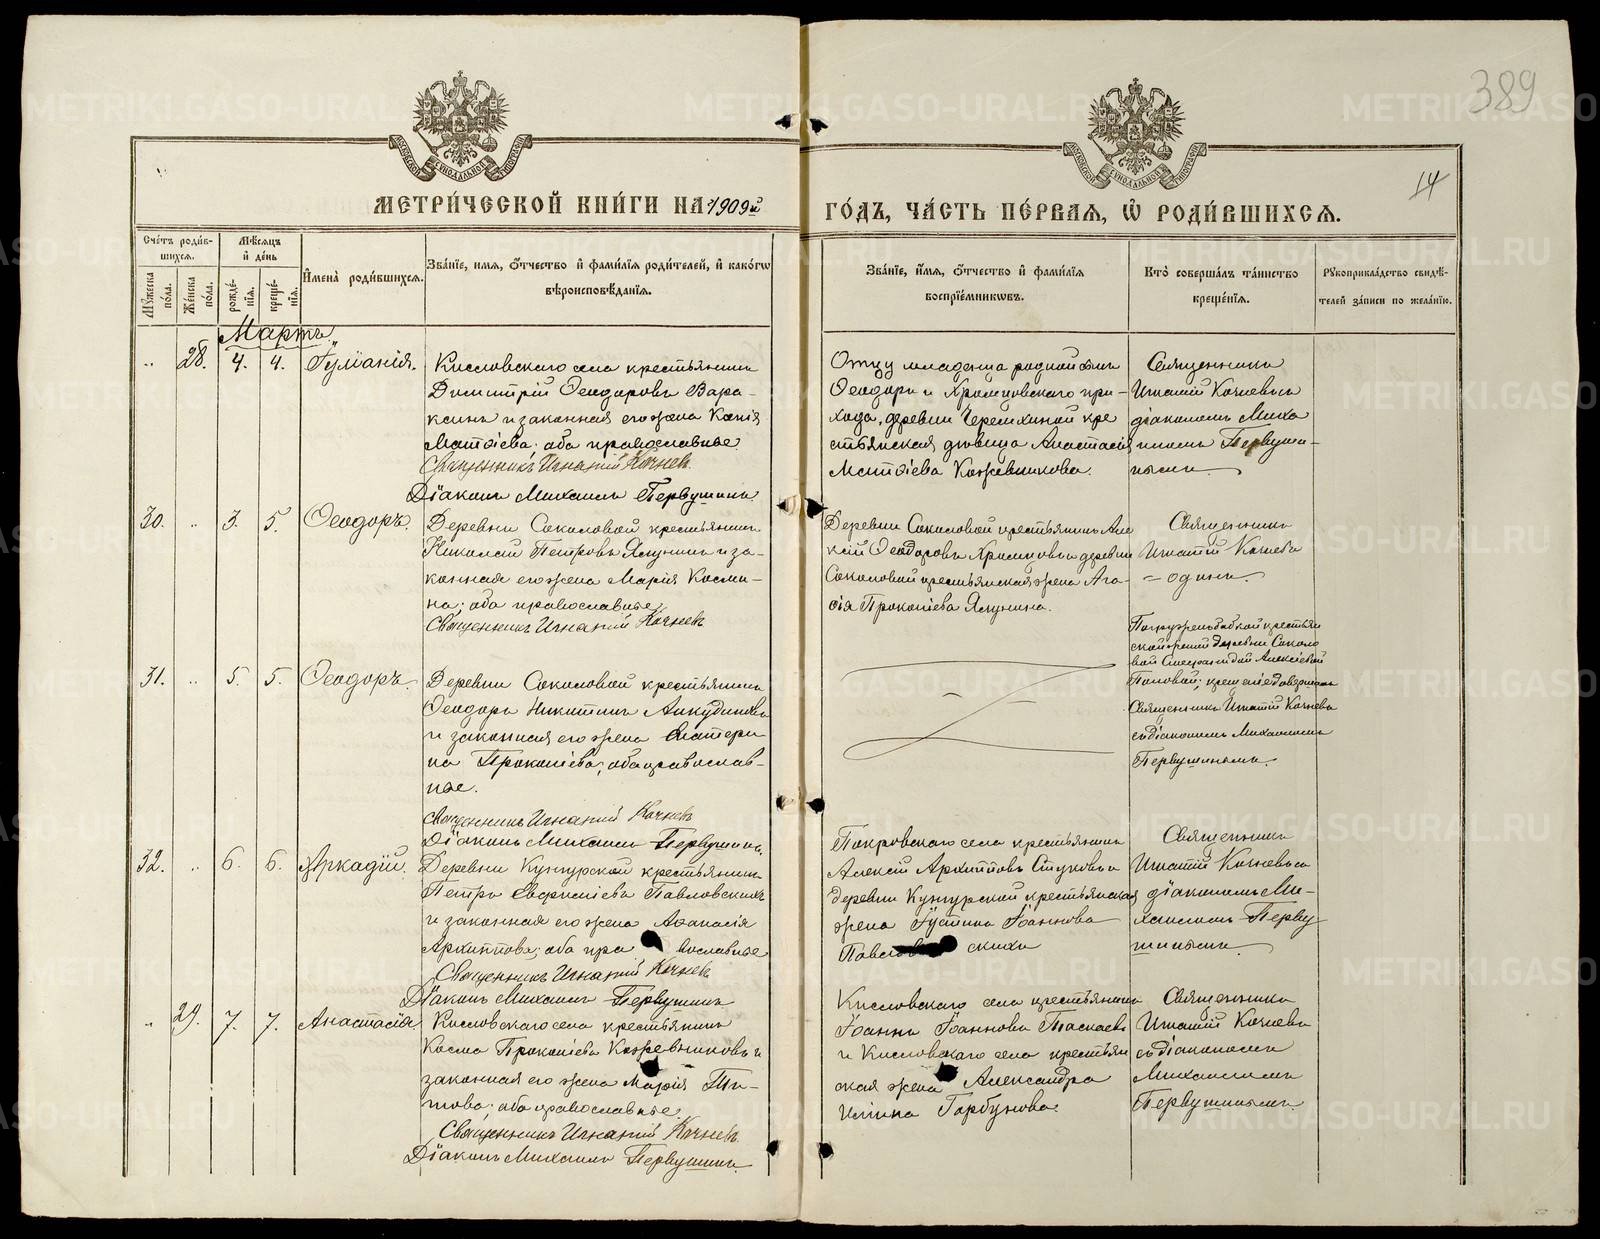 389
14
МОСКОВСКОЙ СѴНОДАЛЬНОЙ ТИПОГРАФІИ
МОСКОВСКОЙ СѴНОДАЛЬНОЙ ТИПОГРАФІИ
МЕТРИ́ЧЕСКОЙ КНИ́ГИ НА 1909й ГО́ДЪ, ЧА́СТЬ ПЕ́РВАЯ, Ѡ РОДИ́ВШИХСЯ.
Сче́тъ роди́в-
шихся.
Мѣ́сяцъ
и де́нь
Мꙋжеска по́ла.
Же́нска по́ла.
рожде́-нія.
креще́-нія.
Имена̀ роди́вшихся.
Зва́ніе, имя, о́тчество и фами́лія роди́телей, и како́гѡ
вѣроисповѣ́данія.
Зва́ніе, и́мя, о́тчество и фами́лія
воспріе́мникѡвъ.
Кто̀ соверша́лъ та́инство
креще́нія.
Рꙋкоприкла́дство свидѣ́-
телей за́писи по жела́нію.
Мартъ
" 28. 4. 4. Іуліанія.
Кисловскаго села крестьянинъ
Димитрій Ѳеодоровъ Вара-
ксинъ и законная его жена Ксенія
Матѳіева; оба православные
Священникъ Игнатій Кочневъ
Діаконъ Михаилъ Первушинъ
Отцу младенца родной
Ѳеодоръ и Хромцовскаго при-
хода, деревни Черемхиной кре
стьянская дѣвица Анастасія
Матѳіева Кожевникова.
Священникъ
Игнатій Кочневъ съ
діакономъ Миха
иломъ Первуши-
нымъ
30. " 3. 5. Ѳеодоръ.
Деревни Соколовой крестьянинъ
Николай Петровъ Ялунинъ и за-
конная его жена Марія Косми-
на; оба православные
Священникъ Игнатій Кочневъ
Деревни Соколовой крестьянинъ Але
ксій Ѳеодоровъ и деревни
Соколовой крестьянская жена Ага-
ѳія Прокопіева Ялунина.
Священникъ
Игнатій Кочневъ
- одинъ.
31. " 5. 5. Ѳеодоръ.
Деревни Соколовой крестьянинъ
Ѳеодоръ Никитинъ Анкудиновъ
и законная его жена Екатери
на Прокопіева; оба православ-
ные.
Священникъ Игнатій Кочневъ
Діаконъ Михаилъ Первушинъ.
Погружена бабкой крестьян
ской деревни Соколо
вой Алексіевой
Поповой; крещеніе довершалъ
Священникъ Игнатій Кочневъ
съ діакономъ Михаиломъ
Первушинымъ.
32. " 6. 6. Аркадій.
Деревни Кунгурской крестьянинъ
Петръ Павловскихъ
и законная его жена Аѳанасія
Архиппова; оба православные
Священникъ Игнатій Кочневъ
Діаконъ Михаилъ Первушинъ
Покровскаго села крестьянинъ
Алексій Архипповъ Стуковъ и
деревни Кунгурской крестьянская
жена Іустина Іоаннова
Павловскихъ
Священникъ
Игнатій Кочневъ съ
діакономъ Ми-
хаиломъ Перву
шинымъ
" 29. 7. 7. Анастасія.
Кисловскаго села крестьянинъ
Косма Прокопіевъ Кожевниковъ и
законная его жена Марія Ти-
това; оба православные.
Священникъ Игнатій Кочневъ.
Діаконъ Михаилъ Первушинъ.
Кисловскаго села крестьянинъ
Іоаннъ Іоанновъ Таскаевъ
и Кисловскаго села крестьян
ская жена Александра
Горбунова.
Священникъ
Игнатій Кочневъ
съ діакономъ
Михаиломъ
Первушинымъ.
METRIKI.GASO-URAL.RU